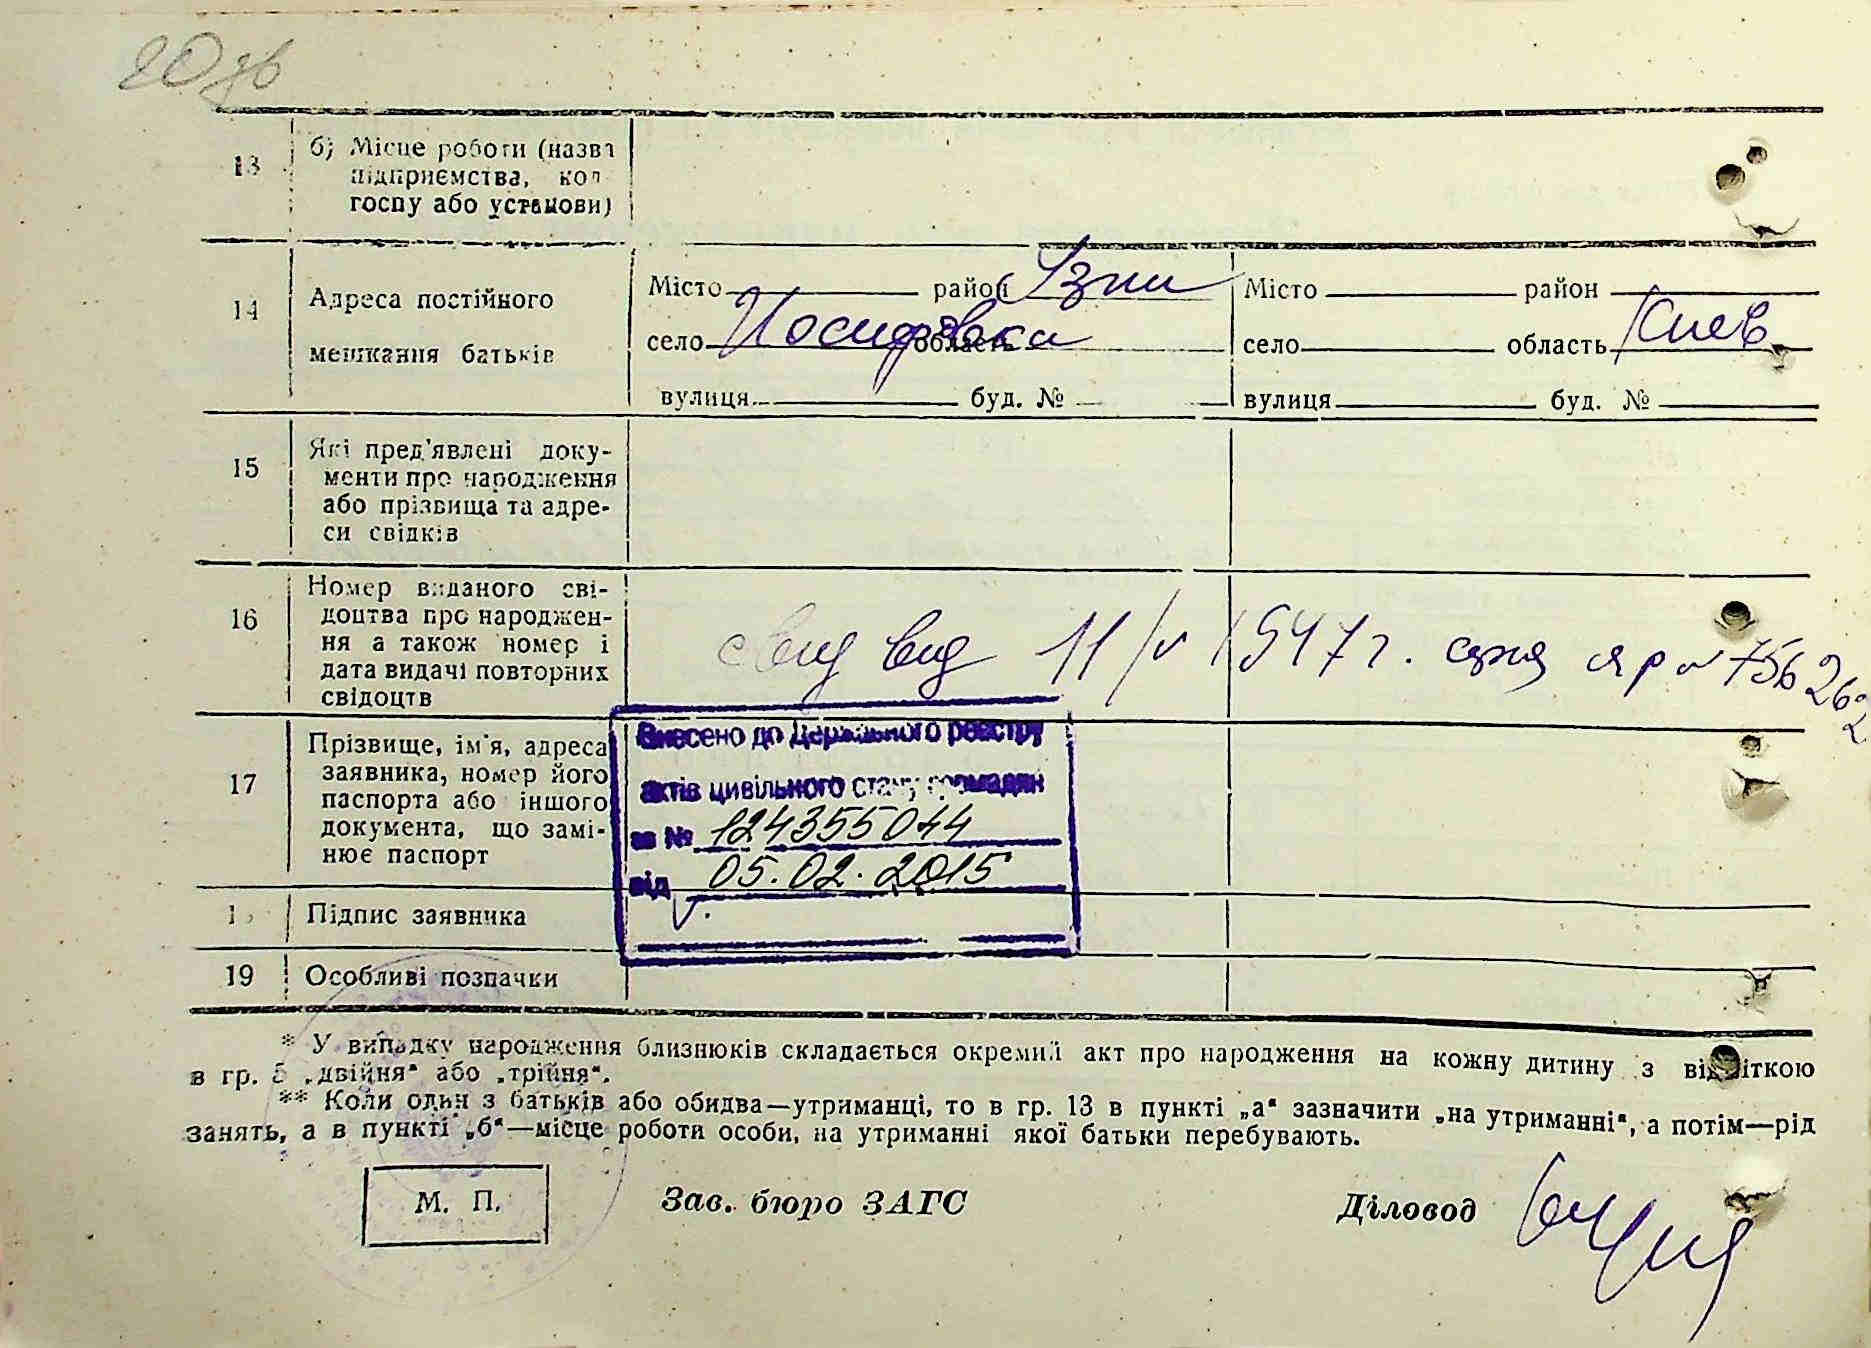 20
13 б) Місце роботи (назва
підприємства, кол-
госпу або установи)
14 Адреса постійного
мешкання батьків
Місто район Узин Місто район
село Йосиповка область село область Киев
вулиця буд. № вулиця буд. №
15 Які пред'явлені доку-
менти про народження
або прізвища та адре-
си свідків
16 Номер виданого сві-
доцтва про народжен-
ня а також номер і
дата видачі повторних
свідоцтв
свид вид 11/V 1947 г. серия яр № 756262
17 Прізвище, ім'я, адреса
заявника, номер його
паспорта або іншого
документа, що замі-
нює паспорт
Внесено до Державного реєстру
актів цивільного стану громадян
за № 124355044
від 05.02.2015
Підпис заявника
19 Особливі позначки
* У випадку народження близнюків складається окремий акт про народження на кожну дитину з відміткою
в гр. 5 „двійня“ або „трійня“.
** Коли один з батьків або обидва—утриманці, то в гр. 13 в пункті „а“ зазначити „на утриманні“, а потім—рід
занять, а в пункті „б“—місце роботи особи, на утриманні якої батьки перебувають.
М. П. Зав. бюро ЗАГС Діловод